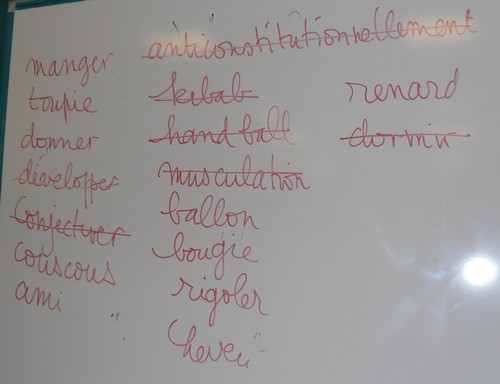 manger
toupie
donner
développer
Conjecturer
couscous
ami
anticonstitutionnellement
kebab
hand ball
musculation
ballon
bougie
rigoler
renard
dormir